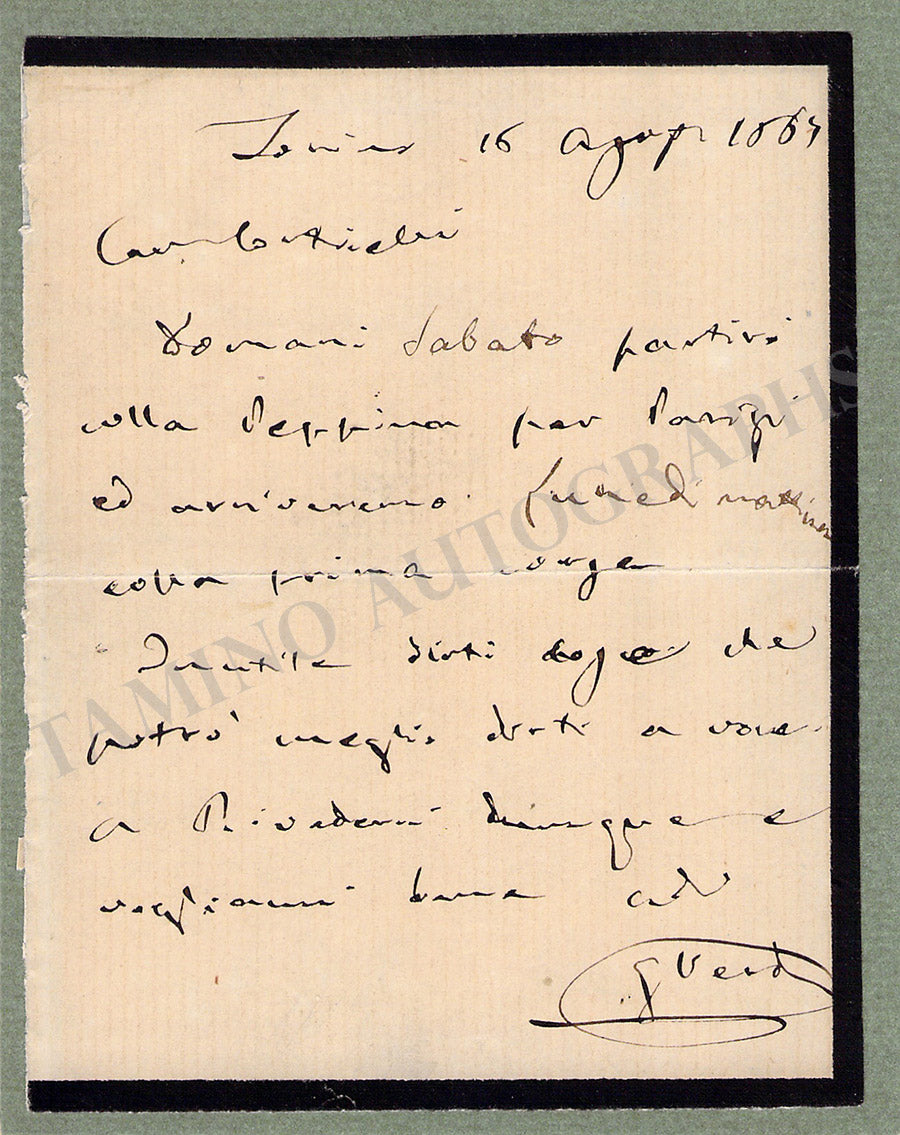 Torino 16 Agosto 1867
Caro Corticelli
Domani Sabato partirò
colla Peppina per Parigi
ed arriveremo Lunedi mattina
colla prima corsa
Inutile dirti cose che
potrò meglio dirti a voce.
a Rivederci dunque e
vogliammi bene
G Verdi
TAMINO AUTOGRAPHS